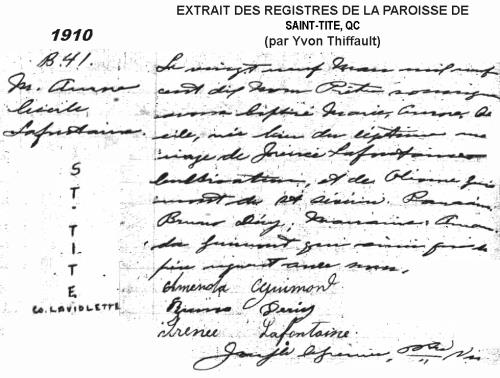 EXTRAIT DES REGISTRES DE LA PAROISSE DE
SAINT-TITE, QC
(par Yvon Thiffault)
1910
B.41.
M. Anne
Cécile
Lafontaine.
ST-TITE
CO. LAVIOLETTE
Le vingt neuf Mars mil neuf
cent dix Nous Prêtre soussigné
avons baptisé Marie, Anne, Cé
cile, née du légitime ma
riage de Lafontaine
cultivateur, et de Gui
mont de cette Parrain
Bruno Déry, Marraine Aman
da Guimont qui ainsi que le
père signent avec nous.
Amenda Guimont
Bruno Dery
Irenee Lafontaine.
Joseph Grenier, Ptre Vic